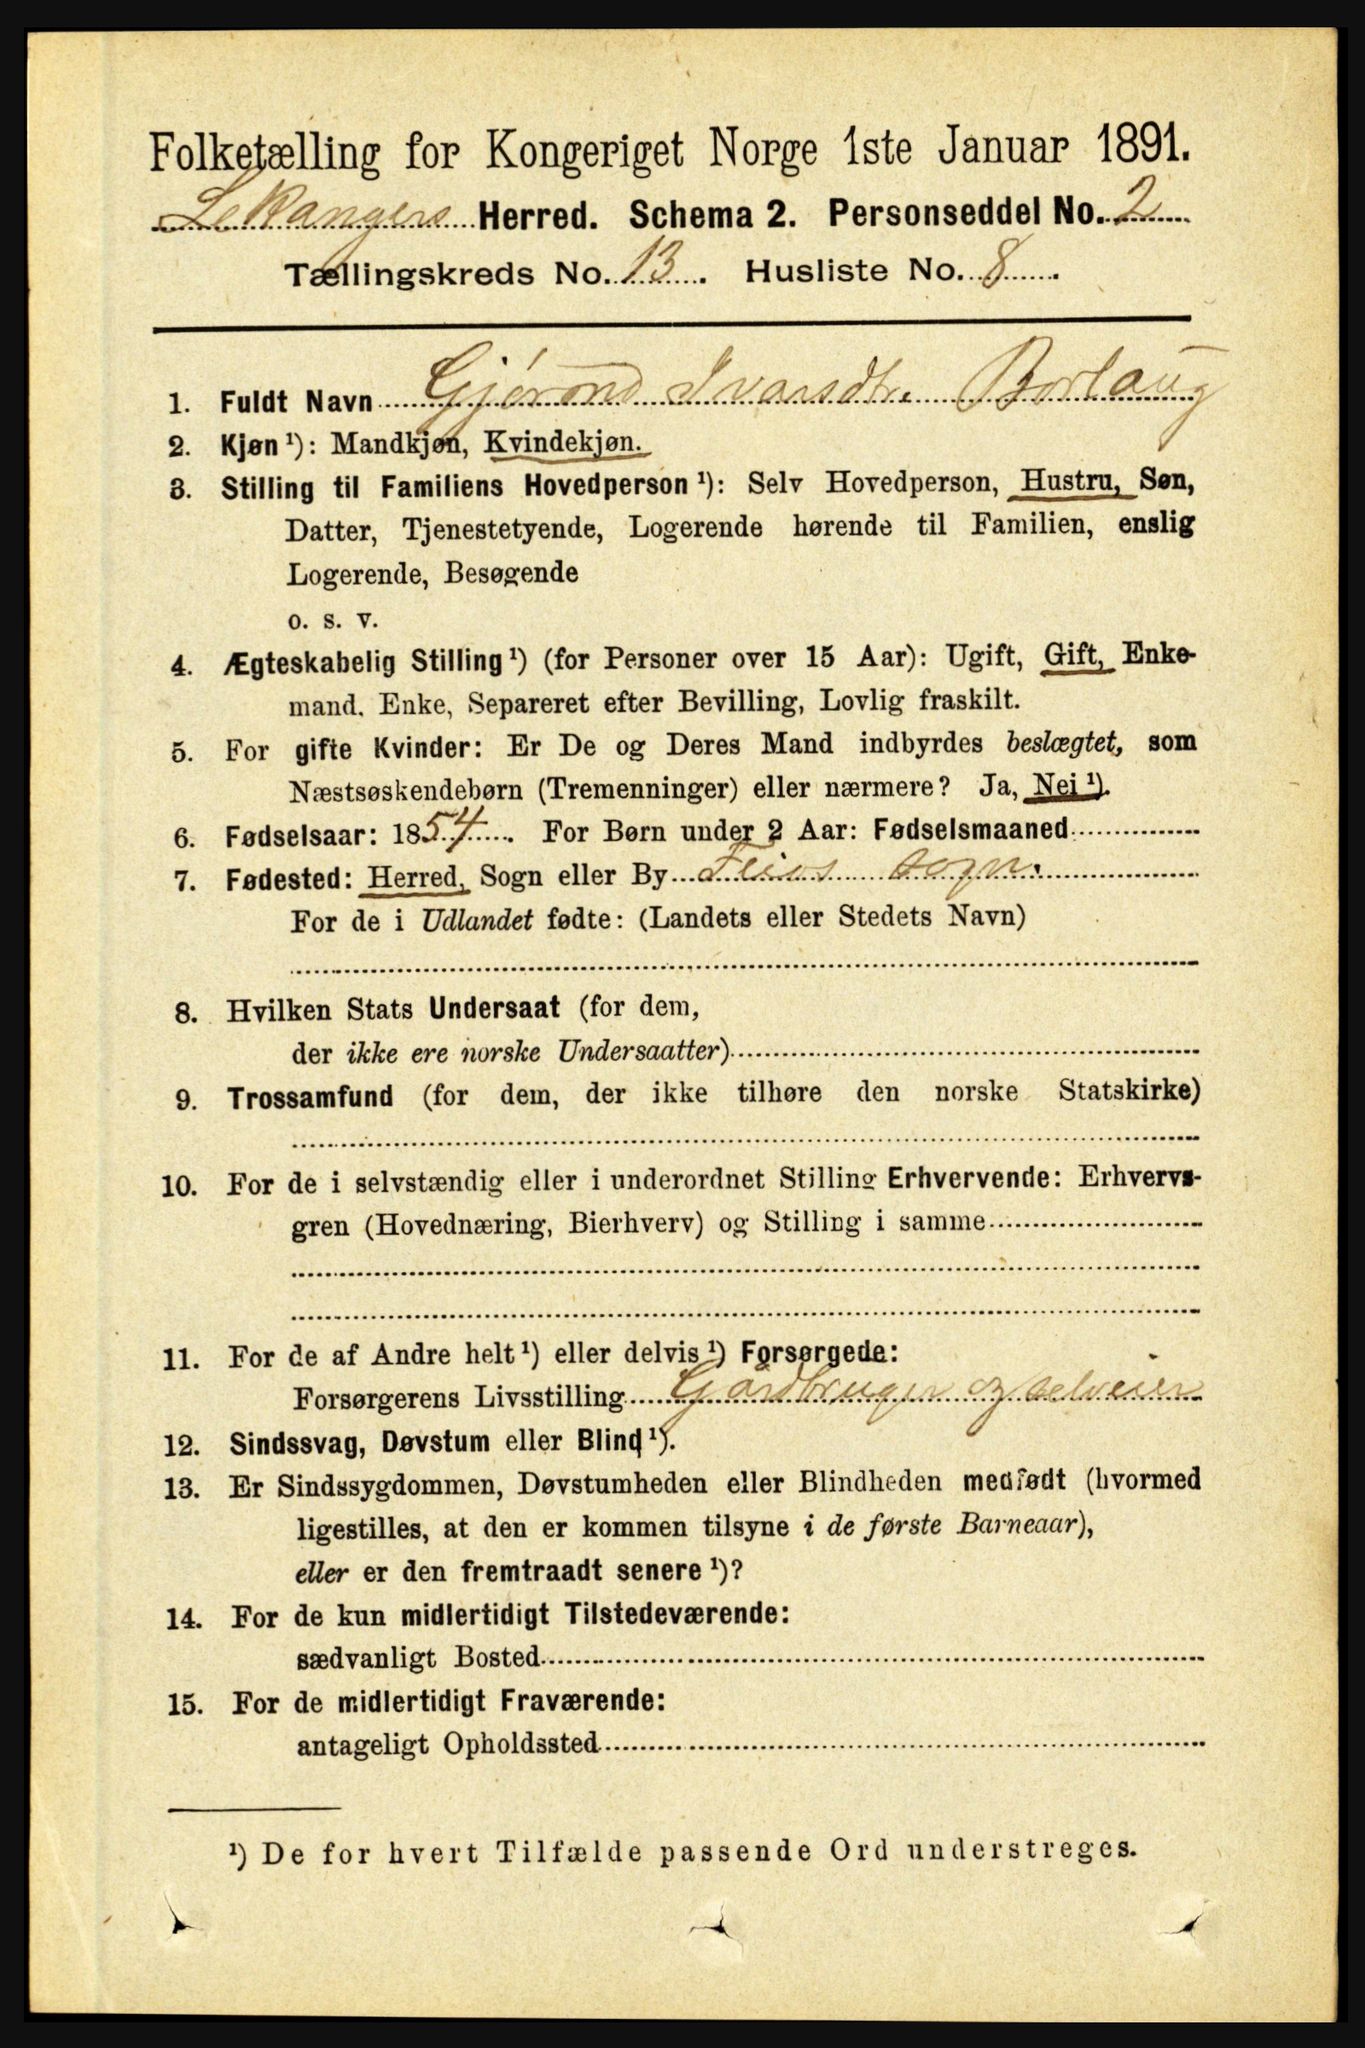 Folketælling for Kongeriget Norge 1ste Januar 1891.
Lekangers Herred. Schema 2. Personseddel No. 2
Tællingskreds No. 13. Husliste No. 8.
1. Fuldt Navn Gjörond Ivarsdtr. Borlaug
2. Kjøn ¹): Mandkjøn, Kvindekjøn.
3. Stilling til Familiens Hovedperson ¹): Selv Hovedperson, Hustru, Søn,
Datter, Tjenestetyende, Logerende hørende til Familien, enslig
Logerende, Besøgende
o. s. v.
4. Ægteskabelig Stilling ¹) (for Personer over 15 Aar): Ugift, Gift, Enke-
mand, Enke, Separeret efter Bevilling, Lovlig fraskilt.
5. For gifte Kvinder: Er De og Deres Mand indbyrdes beslægtet, som
Næstsøskendebørn (Tremenninger) eller nærmere? Ja, Nei ¹).
6. Fødselsaar: 1854. For Børn under 2 Aar: Fødselsmaaned
7. Fødested: Herred, Sogn eller By Feios sogn.
For de i Udlandet fødte: (Landets eller Stedets Navn)
8. Hvilken Stats Undersaat (for dem,
der ikke ere norske Undersaatter)
9. Trossamfund (for dem, der ikke tilhøre den norske Statskirke)
10. For de i selvstændig eller i underordnet Stilling Erhvervende: Erhvervs-
gren (Hovednæring, Bierhverv) og Stilling i samme
11. For de af Andre helt ¹) eller delvis ¹) Forsørgede:
Forsørgerens Livsstilling Gårdbruger og selveier
12. Sindssvag, Døvstum eller Blind ¹).
13. Er Sindssygdommen, Døvstumheden eller Blindheden medfødt (hvormed
ligestilles, at den er kommen tilsyne i de første Barneaar),
eller er den fremtraadt senere ¹)?
14. For de kun midlertidigt Tilstedeværende:
sædvanligt Bosted
15. For de midlertidigt Fraværende:
antageligt Opholdssted
¹) De for hvert Tilfælde passende Ord understreges.